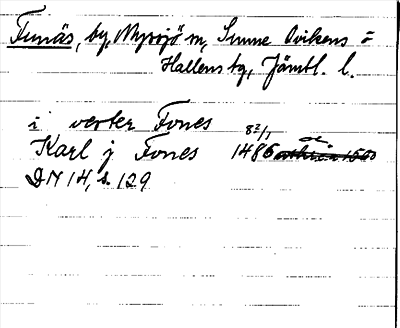 Funäs, by, Myssjö sn, Sunne Ovikens o
Hallens tg, Jämtl. l.
i vester Fones
Karl j Fones 8²/₁ 1486
DN 14, s. 129